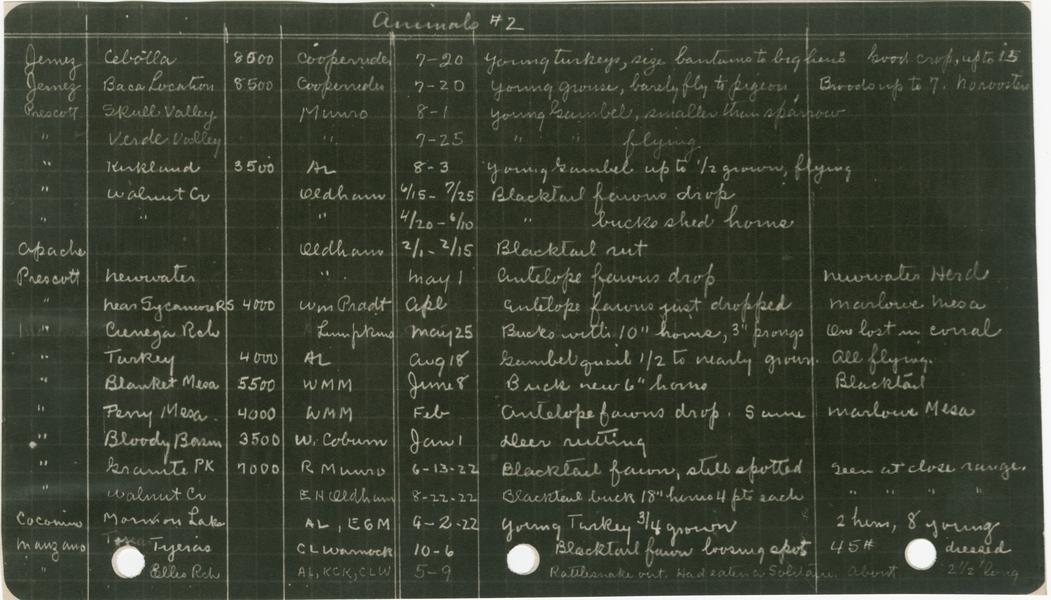 Animals #2
Jemez Cebolla 8500 Cooperrider 7-20 Young turkeys, size bantams to big hens Good crop, up to 15
Jemez Baca Location 8500 Cooperrider 7-20 Young grouse, barely fly to pigeon Broods up to 7. No roosters
Prescott Skull Valley Munro 8-1 Young Gambel, smaller than sparrow
" Verde Valley " 7-25 " " flying
" Kirkland 3500 AL 8-3 Young Gambel up to 1/2 grown, flying
" Walnut Cr Oldham 6/15 - 7/25 Blacktail fawns drop
" " " 4/20 - 6/10 " bucks shed horns
Apache Oldham 2/1 - 2/15 Blacktail rut
Prescott Newwater " May 1 Antelope fawns drop Newwater Herd
" near Sycamore RS 4000 Wm Pradt Apl Antelope fawns just dropped Marlowe Mesa
" Cienega Rch Lumpkins May 25 Bucks with 10" horns, 3" prongs One lost in corral
" Turkey 4000 AL Aug 18 Gambel quail 1/2 to nearly grown. All flying.
" Blanket Mesa 5500 WMM June 8 Buck new 6" horns Blacktail
" Perry Mesa. 4000 WMM Feb Antelope fawns drop. Same Marlowe Mesa
" Bloody Basin 3500 W. Coburn Jan 1 Deer rutting
" Granite PK 7000 R Munro 6-13-22 Blacktail fawn, still spotted Seen at close range.
" Walnut Cr E H Oldham 8-22-22 Blacktail buck 18" horns 4 pts each " " " "
Coconino Mormon Lake AL, EGM 9-2-22 Young Turkey 3/4 grown 2 hens, 8 young
Manzano Tijeras C L Warnock 10-6 Blacktail fawn loosing spots 45# dressed
" Ellis Rch AL, KCK, CLW 5-9 Rattlesnake out. Had eaten a Solitaire. About 2 1/2' long